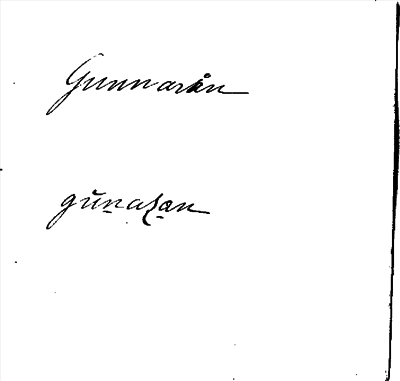 Gunnarsån
gŭn̠aʂa̠n